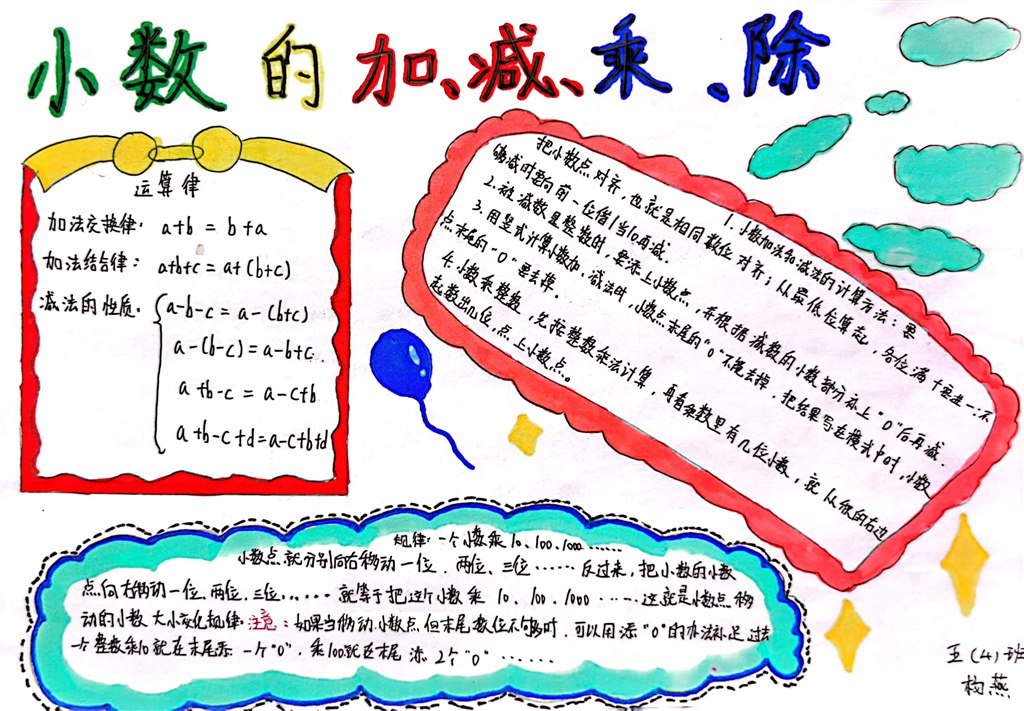 小数的加、减、乘、除
运算律
加法交换律: a+b = b+a
加法结合律: a+b+c = a+(b+c)
减法的性质: a-b-c = a-(b+c)
a-(b-c)=a-b+c.
a+b-c = a-c+b
a+b-c+d=a-c+b+d
1. 小数加法和减法的计算方法: 要
把小数点对齐, 也就是相同数位对齐; 从最低位算起, 各位满十要进一; 不
够减时要向前一位借1当10再减.
2. 被减数是整数时, 要添上小数点, 并根据减数的小数部分补上"0"后再减.
3. 用竖式计算小数加、减法时, 小数点末尾的"0"不能去掉, 把结果写在横式中时, 小数
点末尾的"0"要去掉.
4. 小数乘整数, 先按整数乘法计算, 再看乘数里有几位小数, 就从积的右边
起数出几位, 点上小数点。
规律: 一个小数乘10、100、1000……
小数点就分别向右移动一位、两位、三位……反过来, 把小数的小数
点向右移动一位、两位、三位……就等于把这个小数乘 10、100、1000……这就是小数点移
动的小数大小变化规律. 注意: 如果当移动小数点但末尾数位不够时, 可以用添"0"的办法补足 过去
一个整数乘10就在末尾添一个"0", 乘100就在末尾添2个"0"……
五(4)班
燕